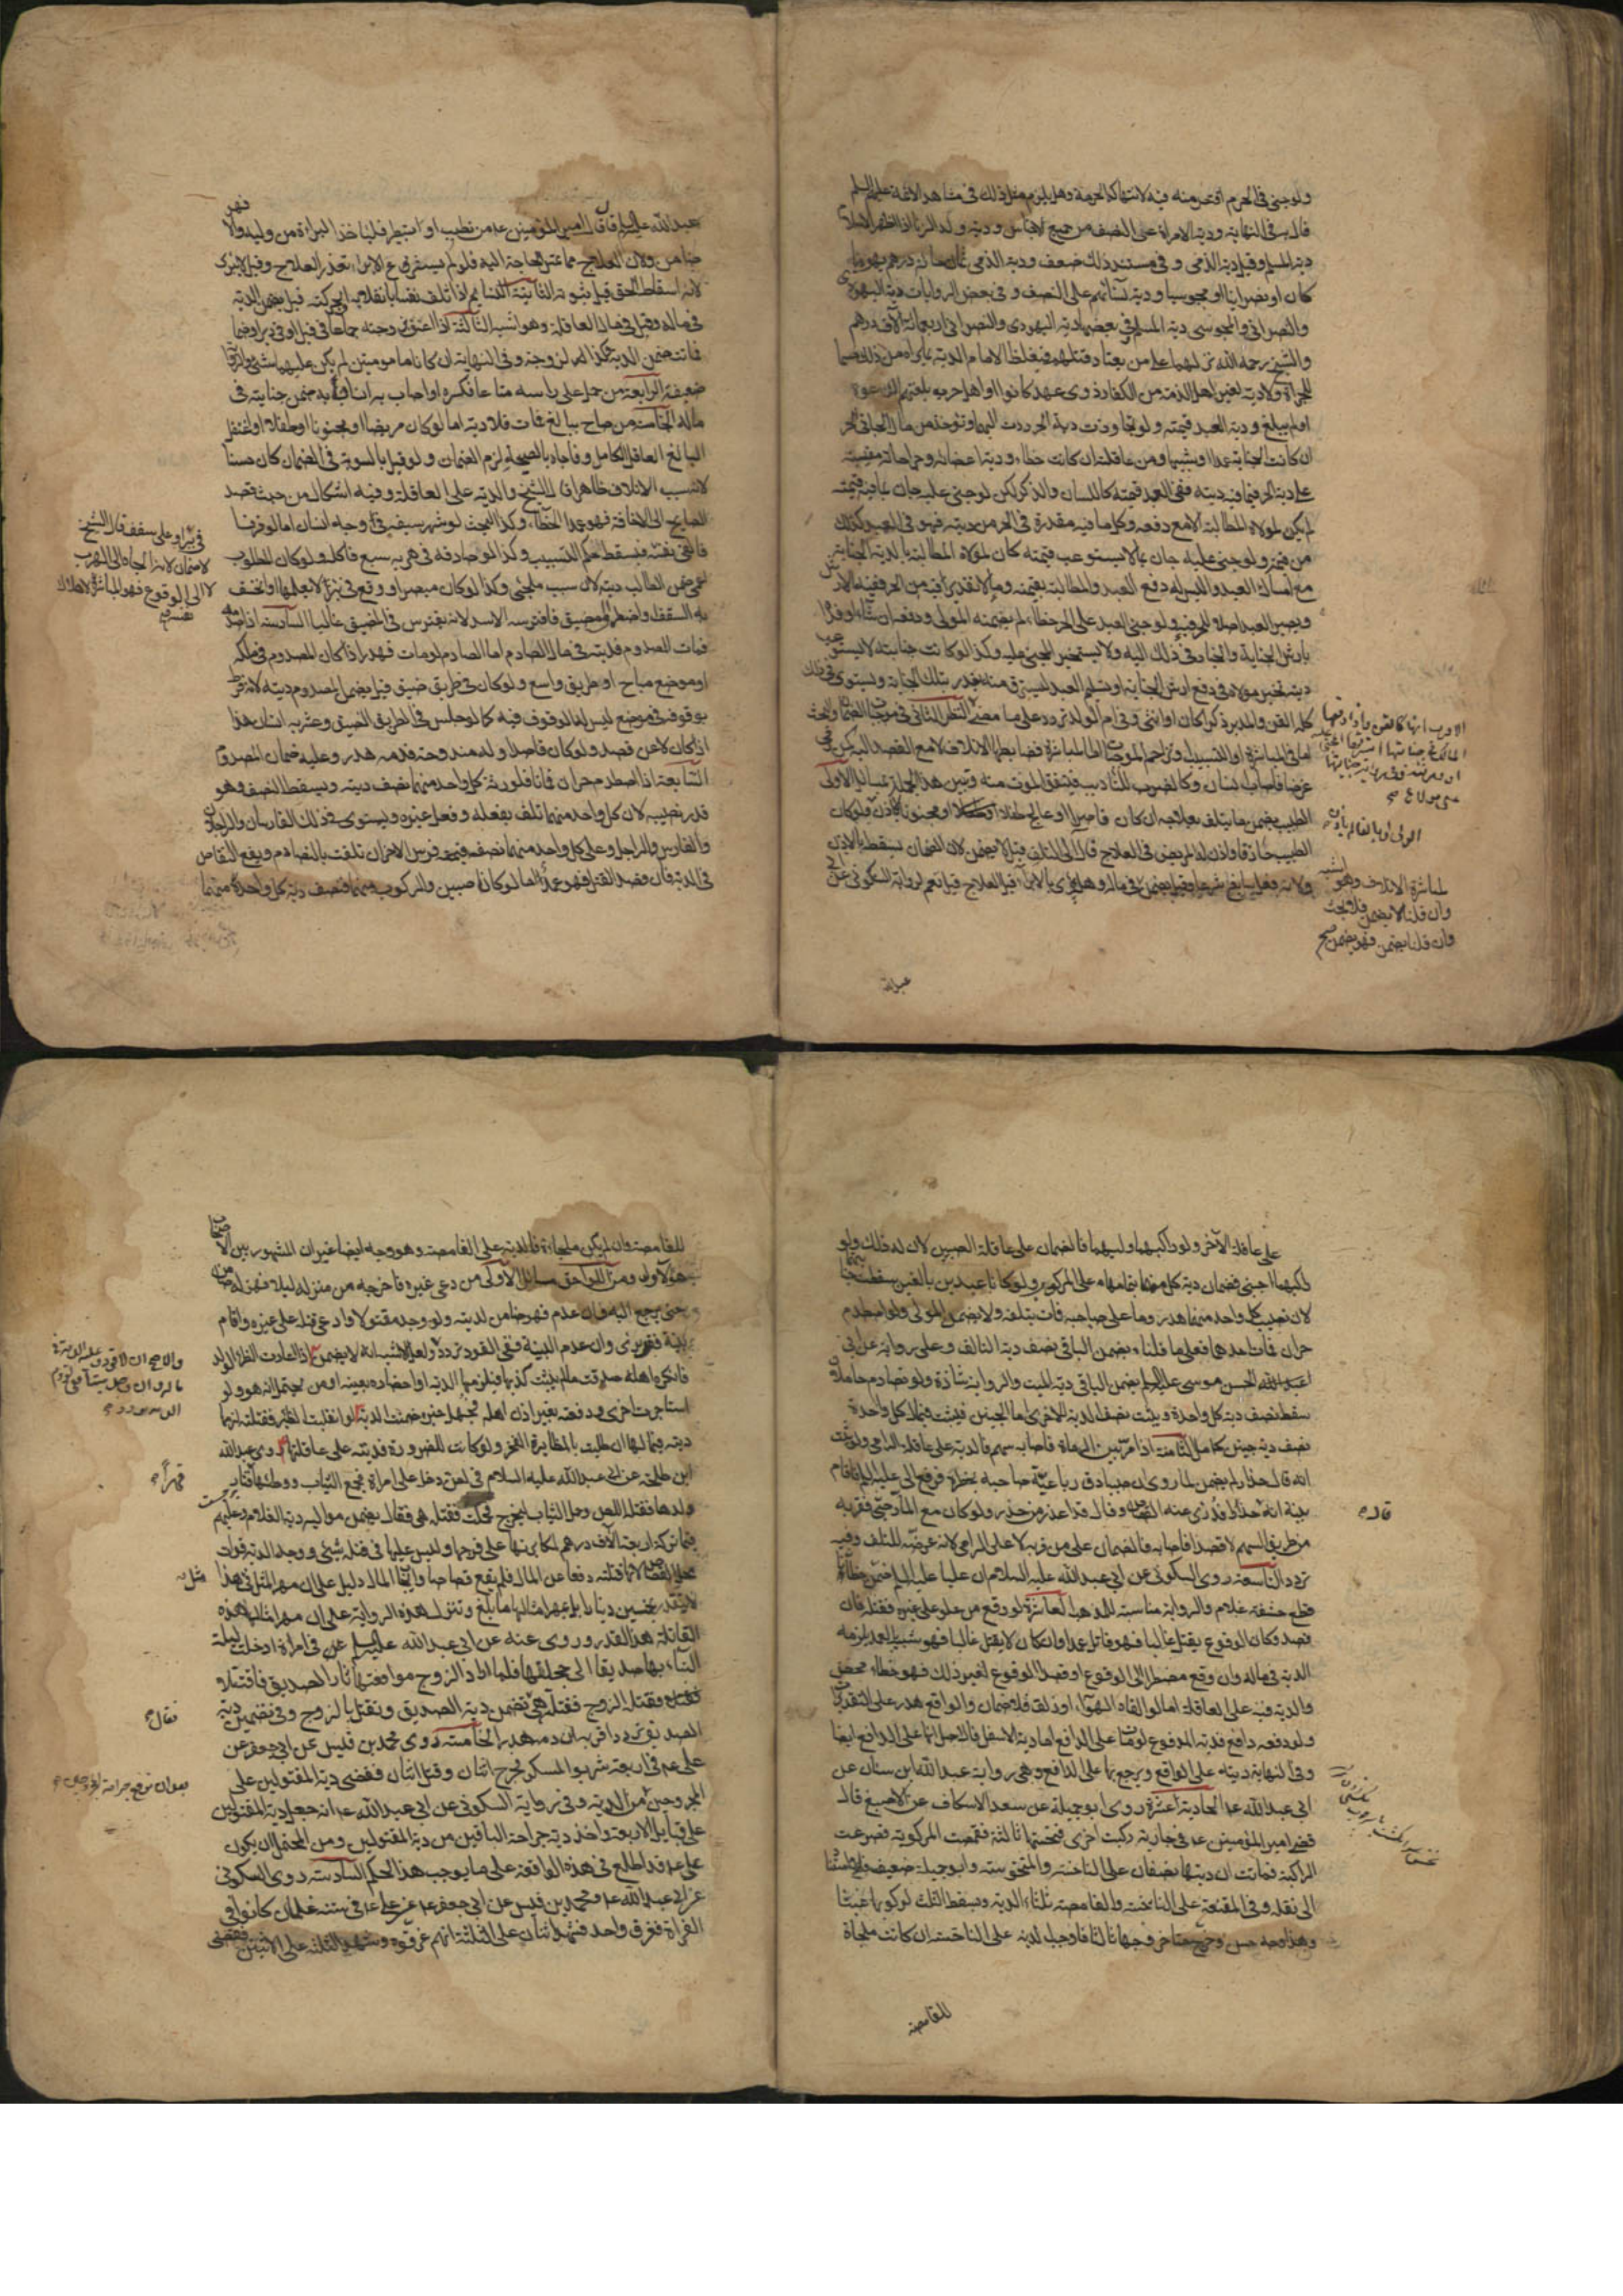 ولو جنى في الحرم اقتص منه فيه لانتهاكه الحرمة وهل يلزم مثل ذلك في مشاهد الائمة عليهم السلم
قال به في النهاية ودية الامراة على النصف من جميع الاجناس ودية ولد الزنا اذا اظهر الاسلام
دية المسلم وقيل دية الذمي وفي مستند ذلك ضعف ودية الذمي ثمان مائة درهم يهوديا
كان او نصرانيا او مجوسيا ودية نسائهم على النصف وفي بعض الروايات دية اليهودي
والنصراني والمجوسي دية المسلم وفي بعضها دية اليهودي والنصراني اربعمائة آلاف درهم
والشيخ رحمه الله نزلهما على من يعتاد قتلهم فيغلظ الامام الدية بما يراه من ذلك حسما
للجراة ولا دية لغير اهل الذمة من الكفار ذوي عهد كانوا او اهل حرب بلغتهم الدعوة
او لم يبلغ ودية العبد قيمته ولو تجاوزت دية الحر ردت اليها وتوخذ من مال الجاني الحر
ان كانت الجناية عمدا او شبيها ومن عاقلته ان كانت خطاء ودية اعضائه وجراحاته مقيسة
على دية الحر فما فيه ديته ففي العبد قيمته كاللسان والذكر لكن لو جنى عليه جان بما فيه قيمته
لم يكن لمولاه المطالبة الا مع دفعه وكل ما فيه مقدرة في الحر من ديته فهو في العبد كذلك
من قيمته ولو جنى عليه جان بما لا يستوعب قيمته كان لمولاه المطالبة بالدية الجناية
مع امساك العبد وليس له دفع العبد والمطالبة بقيمته وما لا تقدير فيه من الحر ففيه الارش
ويصير العبد اصلا للحر فيه ولو جنى العبد على الحر خطاء لم يضمنه المولى ودفعه ان شاء او فداه
بارش الجناية والخيار في ذلك اليه ولا يتخير المجني عليه وكذا لو كانت جنايته لا يستوعب
ديته تخير مولاه في دفع ارش الجناية او تسليم العبد ليسترق منه بقدر تلك الجناية ويستوي في ذلك
كله القن والمدبر ذكرا كان او انثى وفي ام الولد تردد على ما مضى النظر الثاني في موجبات الضمان والبحث
اما في المباشرة او التسبيب او تزاحم الموجبات اما المباشرة فضابطها الاتلاف لا مع القصد اليه كمن رمى
غرضا فاصاب انسان وكالضرب للتأديب فيتفق الموت منه وتبين هذه الجملة بمسائل الاولى
الطبيب يضمن ما يتلف بعلاجه ان كان قاصرا او عالج طفلا او مجنونا لا باذن ولو كان
الطبيب حاذقا واذن له المريض في العلاج فآل الى التلف قيل لا يضمن لان الضمان يسقط بالاذن
ولانه فعل سايغ شرعا وقيل يضمن في ماله وهل يبرى بالابراء قبل العلاج قيل نعم لرواية السكوني عن ابي
المالك في جنايتها استرقها المجني عليه
الولي او بالغا لم ياذن
لمباشرة الاتلاف وهو اشبه
وان قلنا لا يضمن فلا بحث
وان قلنا يضمن فهو يضمن صح
عبد الله
عبد الله عليه السلم قال قال امير المؤمنين ع من تطبب او تبيطر فليأخذ البراءة من وليه والا فهو
ضامن ولان العلاج مما تمس الحاجة اليه فلو لم يشرع الابراء تعذر العلاج وقيل لا يبرى
لانه اسقاط الحق قبل ثبوته الثانية النايم اذا اتلف نفسا بانقلابه او بحركته قيل يضمن الدية
في ماله وقيل في مال العاقلة وهو اشبه الثالثة اذا اعنف بزوجته جماعا في قبل او في دبر او ضما
فماتت ضمن الدية وكذا المراة لزوجته وفي النهاية ان كانا مامونين لم يكن عليهما شئ والرواية
ضعيفة الرابعة من حمل على راسه متاعا فكسره او اصاب به انسانا ضمن جنايته في
ماله الخامسة من صاح ببالغ فمات فلا دية اما لو كان مريضا او مجنونا او طفلا او اغتفل
البالغ العاقل الكامل وفاجاه بالصيحة لزم الضمان ولو قيل بالسوية في الضمان كان حسنا
لانه سبب الاتلاف ظاهرا قال الشيخ والدية على العاقلة وفيه اشكال من حيث قصد
الصايح الى الاخافة فهو عمد الخطاء وكذا البحث لو شهر سيفه في وجه انسان اما لو فر فيها
فالقى نفسه فيسقط حكم التسبيب وكذا لو صادفه في هربه سبع فاكله ولو كان المطلوب
اعمى ضمن الطالب ديته لانه سبب ملجئ وكذا لو كان مبصرا ووقع في بئر لا يعلمها او انخسف
به السقف او اضطره الى مضيق فافترسه الاسد لانه يفترس في المضيق غالبا السادسة اذا صدمه
فمات المصدوم فديته في مال الصادم اما الصادم لو مات فهدر اذا كان المصدوم في ملكه
او موضع مباح او طريق واسع ولو كان في طريق ضيق قيل يضمن المصدوم ديته لانه فرط
بوقوفه في موضع ليس له الوقوف فيه كما لو جلس في الطريق الضيق وعثر به انسان هذا
اذا كان لا عن قصد ولو كان قاصدا وله مندوحة فدمه هدر وعليه ضمان المصدوم
السابعة اذا اصطدم حران فماتا فلورثة كل واحد منهما نصف ديته ويسقط النصف وهو
قدر نصيبه لان كل واحد منهما تلف بفعله وفعل غيره ويستوي في ذلك الفارسان والراجلان
والفارس والراجل وعلى كل واحد منهما نصف قيمة فرس الاخر ان تلفت بالتصادم ويقع التقاص
في الدية فان قصد القتل فهو عمد اما لو كانا صبيين والركوب منهما فنصف دية كل واحد منهما
في بئر او على سقف قال الشيخ
لا ضمان لانه انما الجاه الى الهرب
لا الى الوقوع فهو المباشر لاهلاك
نفسه
على عاقلة الآخر ولو اركبهما وليهما فالضمان على عاقلة الصبيين لان له ذلك ولو
اركبهما اجنبي فضمان دية كل منهما بتمامها على المركب ولو كانا عبدين بالغين سقطت جنايتهما
لان نصيب كل واحد منهما هدر وما على صاحبه فات بتلفه ولا يضمن المولى ولو اصطدم
حران فمات احدهما فعلى ما قلناه يضمن الباقي نصف دية التالف وعلى رواية عن ابي
الحسن موسى عليه السلم يضمن الباقي دية الميت والرواية شاذة ولو تصادم حاملان
سقط نصف دية كل واحدة ويثبت نصف الدية للاخرى اما الجنين فيثبت في مال كل واحدة
نصف دية جنين كامل الثامنة اذا مر بين الرماة فاصابه سهم فالدية على عاقلة الرامي ولو ثبت
انه قال حذار لم يضمن لما روي ان صبيا دق رباعية صاحبه بخطره فرفع الى علي عليه السلم فاقام
بينة انه قال حذار فدرئ عنه القصاص وقال قد اعذر من حذر ولو كان مع المار صبي فقربه
من طريق السهم لا قصدا فاصابه فالضمان على من قربه لا على الرامي لانه عرضه للتلف وفيه
تردد التاسعة روى السكوني عن ابي عبد الله عليه السلام ان عليا عليه السلم ضمن ختانا
قطع حشفة غلام والرواية مناسبة للمذهب العاشرة لو وقع من علو على غيره فقتله فان
قصد وكان الوقوع يقتل غالبا فهو قاتل عمدا وان كان لا يقتل غالبا فهو شبيه العمد يلزمه
الدية في ماله وان وقع مضطرا الى الوقوع او قصد الوقوع لغير ذلك فهو خطاء محض
والدية فيه على العاقلة اما لو القاه الهواء او زلق فلا ضمان والواقع هدر على التقديرات
ولو دفعه دافع فدية المدفوع لو مات على الدافع اما دية الاسفل فالاصل انها على الدافع ايضا
وفي النهاية ديته على الواقع ويرجع بها على الدافع وهي رواية عبد الله ابن سنان عن
ابي عبد الله ع الحادية عشرة روى ابو جميلة عن سعد الاسكاف عن الاصبغ قال
قضى امير المؤمنين ع في جارية ركبت اخرى فنخستها ثالثة فقمصت المركوبة فصرعت
الراكبة فماتت ان ديتها نصفان على الناخسة والمنخوسة وابو جميلة ضعيف فلا استناد
الى نقله وفي المقنعة على الناخسة والقامصة ثلثاء الدية ويسقط الثلث لركوبها عبثا
وهذا وجه حسن وخرج متاخر وجها ثالثا فاوجب الدية على الناخسة ان كانت ملجاة
قال
للقامصة
للقامصة وان لم يكن ملجاة فالدية على القامصة وهو وجه ايضا غير ان المشهور بين الاصحاب
هو الاول ومن اللواحق مسائل الاولى من دعى غيره فاخرجه من منزله ليلا فهو له ضامن
حتى يرجع اليه فان عدم فهو ضامن لديته ولو وجد مقتولا وادعى قتله على غيره واقام
بينة فقد برئ وان عدم البينة ففي القود تردد ولعل الاشبه انه لا يضمن اذا اعادت الظئر الولد
فانكره اهله صدقت ما لم يثبت كذبها فيلزمها الدية او احضاره بعينه او من يحتمل انه هو ولو
استاجرت اخرى ودفعته بغير اذن اهله فجهل خبره ضمنت الدية لو انقلبت الظئر فقتلته لزمها
ديته في مالها ان طلبت بالمظايرة الفخر ولو كانت للضرورة فديته على عاقلتها روى عبد الله
ابن طلحة عن ابي عبد الله عليه السلام في لص دخل على امراة فجمع الثياب ووطئها فثار
ولدها فقتله اللص وحمل الثياب ليخرج فحملت فقتلته هي فقال يضمن مواليه دية الغلام وعليهم
فيما ترك اربعة آلاف درهم لمكابرتها على فرجها وليس عليها في قتله شئ ووجه الدية فوات
محل القصاص لانها قتلته دفعا عن المال فلم يقع قصاصا وايجاب المال دليل على ان مهر المثل في هذا
لا يتقدر بخمسين دينارا بل بمهر امثالها ما بلغ وتنزل هذه الرواية على ان مهر امثالها هذه
القاتلة هذا القدر وروى عنه عن ابي عبد الله عليه السلم في امراة ادخلت ليلة
البناء بها صديقا الى حجلتها فلما اراد الزوج مواقعتها ثار الصديق فاقتتلا
فقتله الزوج فقتلته هي تضمن دية الصديق وتقتل بالزوج وفي تضمين دية
الصديق تردد اقربه ان دمه هدر الخامسة روى محمد بن قيس عن ابي جعفر عن
علي ع في اربعة شربوا المسكر فجرح اثنان وقتل اثنان فقضى دية المقتولين على
المجروحين من الدية وفي رواية السكوني عن ابي عبد الله ع انه جعل دية المقتولين
على قبايل الاربعة واخذ دية جراحة الباقين من دية المقتولين ومن المحتمل ان يكون
علي ع قد اطلع في هذه الواقعة على ما يوجب هذا الحكم السادسة روى السكوني
عن ابي عبد الله ع ومحمد بن قيس عن ابي جعفر ع عن علي ع في ستة غلمان كانوا في
الفراة فغرق واحد فشهد اثنان على الثلثة انهم غرقوه وشهد الثلثة على الاثنين فقضى
قهرا
مثل
فقال
بعد ان ترفع جراحة المجروحين